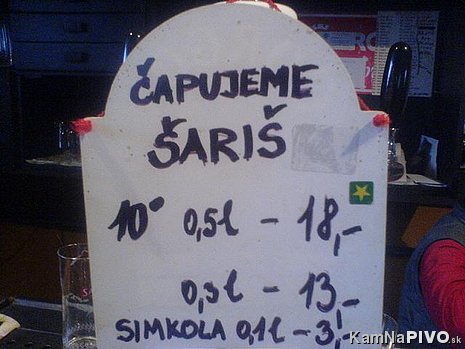 ČAPUJEME
ŠARIŠ
10° 0,5l - 18,-
0,3l - 13,-
SIMKOLA 0,1l - 3,-
KamNaPIVO.sk